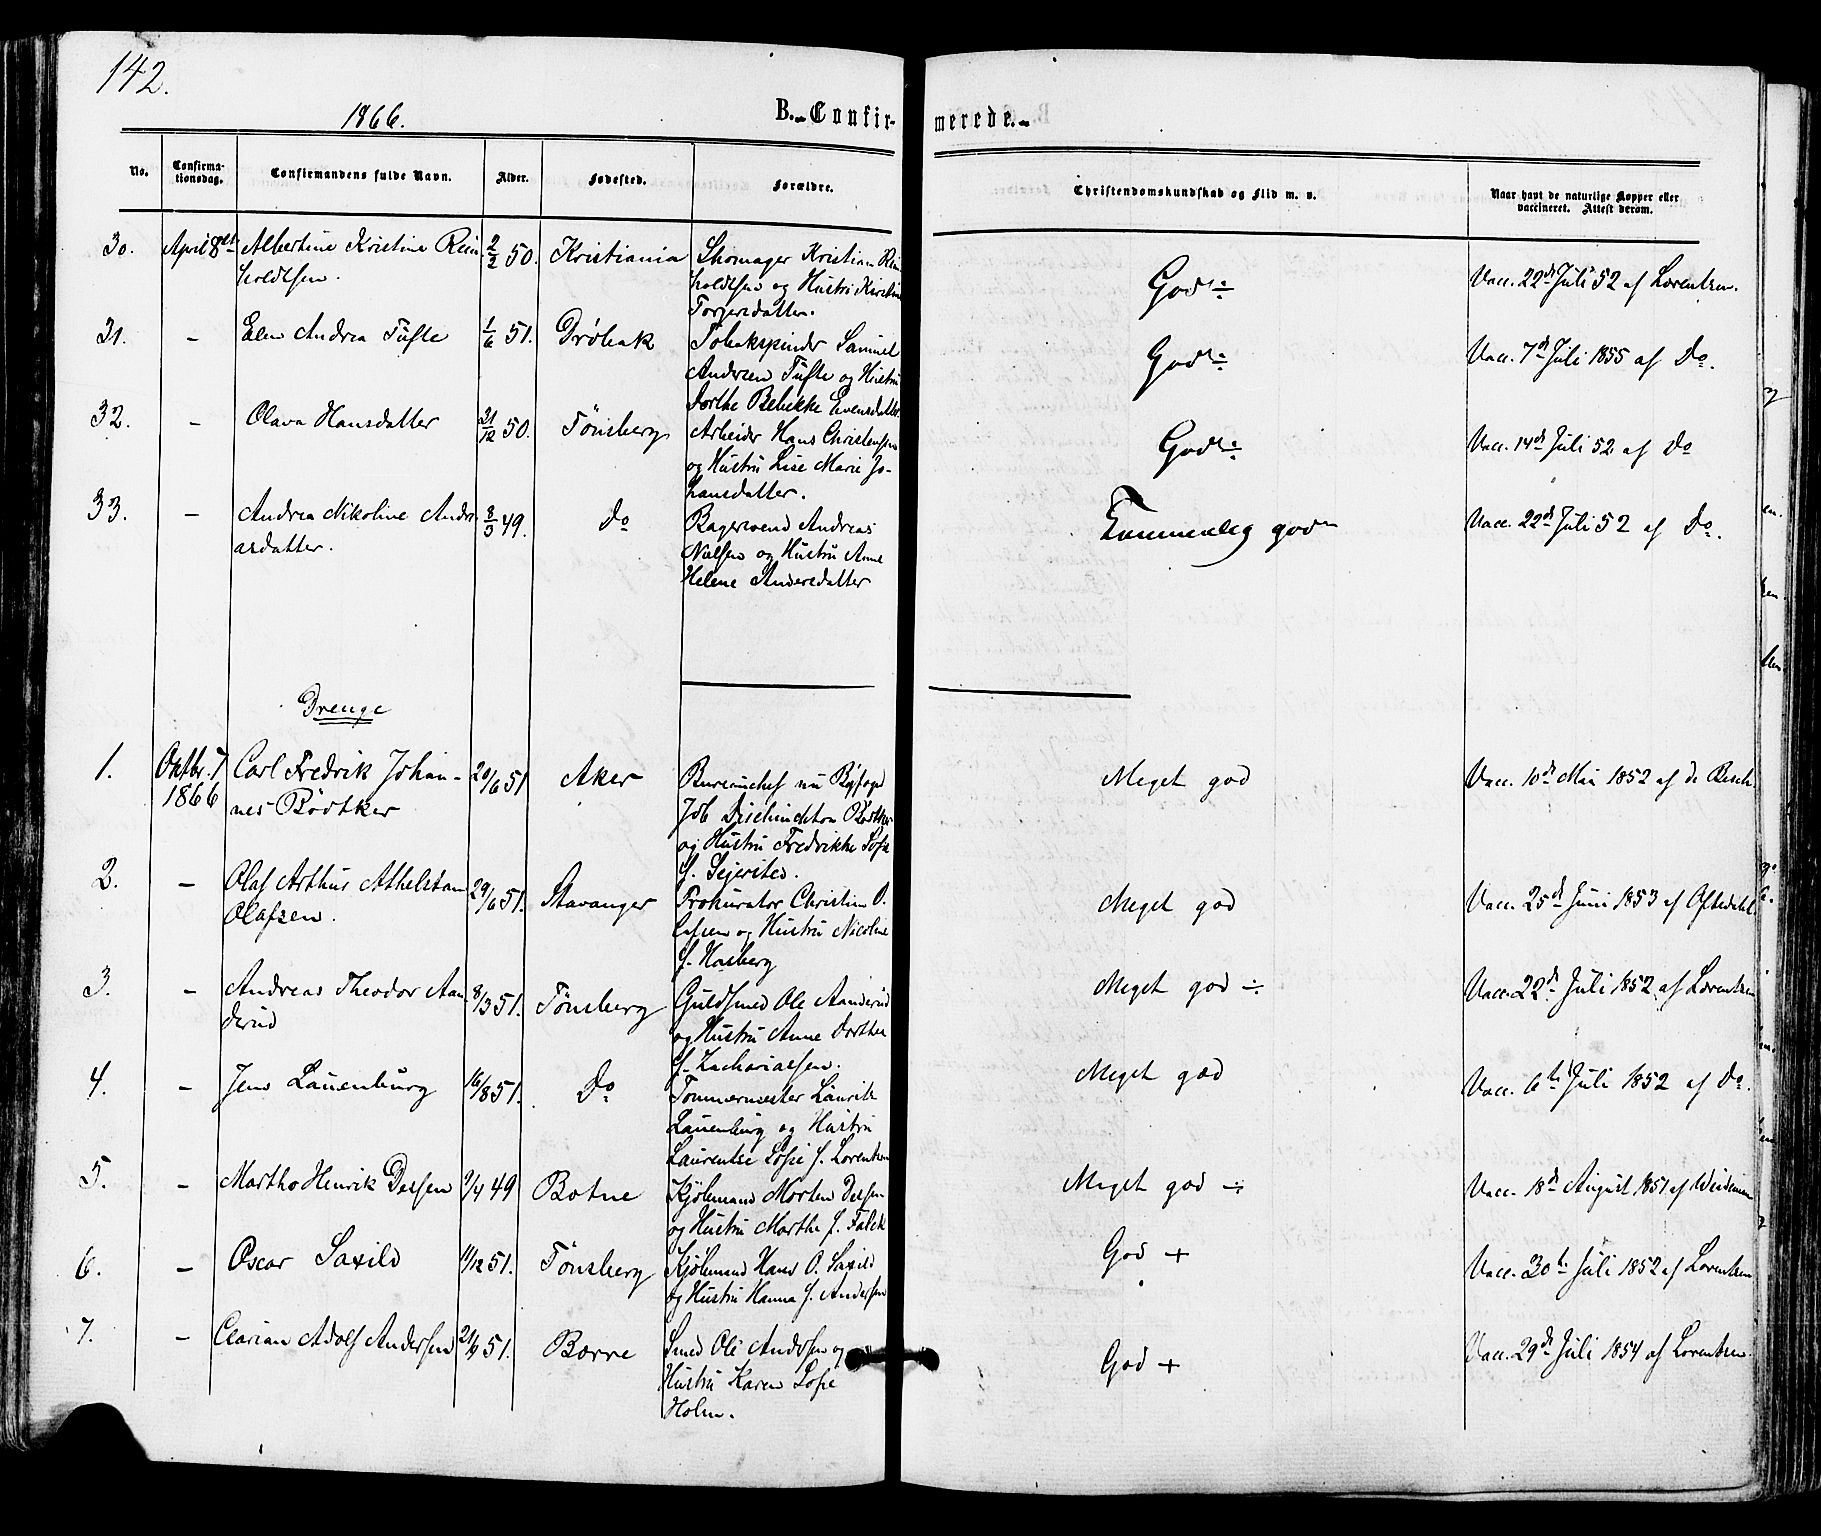 142.
1866.
B. Confirmerede.
No.
Confirma-
tionsdag.
Confirmandens fulde Navn.
Alder.
Fødested.
Forældre.
Christendomskundskab og Flid m. v.
Naar havt de naturlige Kopper eller
vaccineret. Attest derom.
30. April 8de Albertine Kristine Rein- 2/2 50. Kristiania Skomager Kristian Rein-
holdtsen. holdtsen og Hustru Kirstine
Torgersdatter.
God ÷ Vacc. 22de Juli 52 af Lorentzen.
31. - Elen Andrea Tufte 1/6 51. Drøbak Tobakspinder Samuel
Andersen Tufte og Hustru
Dorthe Bebekke Evensdatter.
God ÷ Vacc. 7de Juli 1855 af Do.
32. - Olava Hansdatter 31/12 50. Tönsberg Arbeider Hans Christensen
og Hustru Lise Marie Jo-
hansdatter.
God ÷ Vacc. 14de Juli 52 af Do
33. - Andrea Nikoline Andre- 8/3 49. Do Bagersvend Andreas
asdatter. Nielsen og Hustru Anne
Helene Andersdatter
Temmelig god Vacc. 22de Juli 52 af Do.
Drenge
1. Oktbr. 7 Carl Fredrik Johan- 20/6 51 Aker Bureauchef nu Byfoged
1866 nes Bödtker Job Bödtker
og Hustru Fredrikke Sofie
f. Sejersted.
Meget god Vacc. 10de Mai 1852 af de Besche
2. - Olaf Arthur Athelstan 29/6 51. Stavanger Prokurator Christian O.
Olafsen. Olafsen og Hustru Nicoline
f. Hasberg
Meget god Vacc. 25de Juni 1853 af Oftedahl
3. - Andreas Theodor Aan- 8/3 51. Tönsberg Guldsmed Ole Aanderud
derud og Hustru Anne Dorthea
f. Zachariassen.
Meget god ÷ Vacc. 22de Juli 1852 af Lorentzen
4. - Jens Lauenburg 16/8 51. Do Tømmermester Lauritz
Lauenburg og Hustru
Laurentse Sofie f. Lorentzen
Meget god Vacc. 6te Juli 1852 af Do.
5. - Martho Henrik Dessen 9/4 49 Botne Kjøbmand Morten Dessen
og Hustru Marthe f. Falck
Meget god ÷ Vacc. 18de August 1851 af
6. - Oscar Saxild 11/12 51. Tönsberg Kjøbmand Hans O. Saxild
og Hustru Hanna f. Andersen
God + Vacc. 30te Juli 1852 af Lorentzen
7. - Clarian Adolf Andersen 21/9 51. Borre Smed Ole Andersen og
Hustru Karen Sofie
Holm.
God + Vacc. 29de Juli 1854 af Lorentzen.